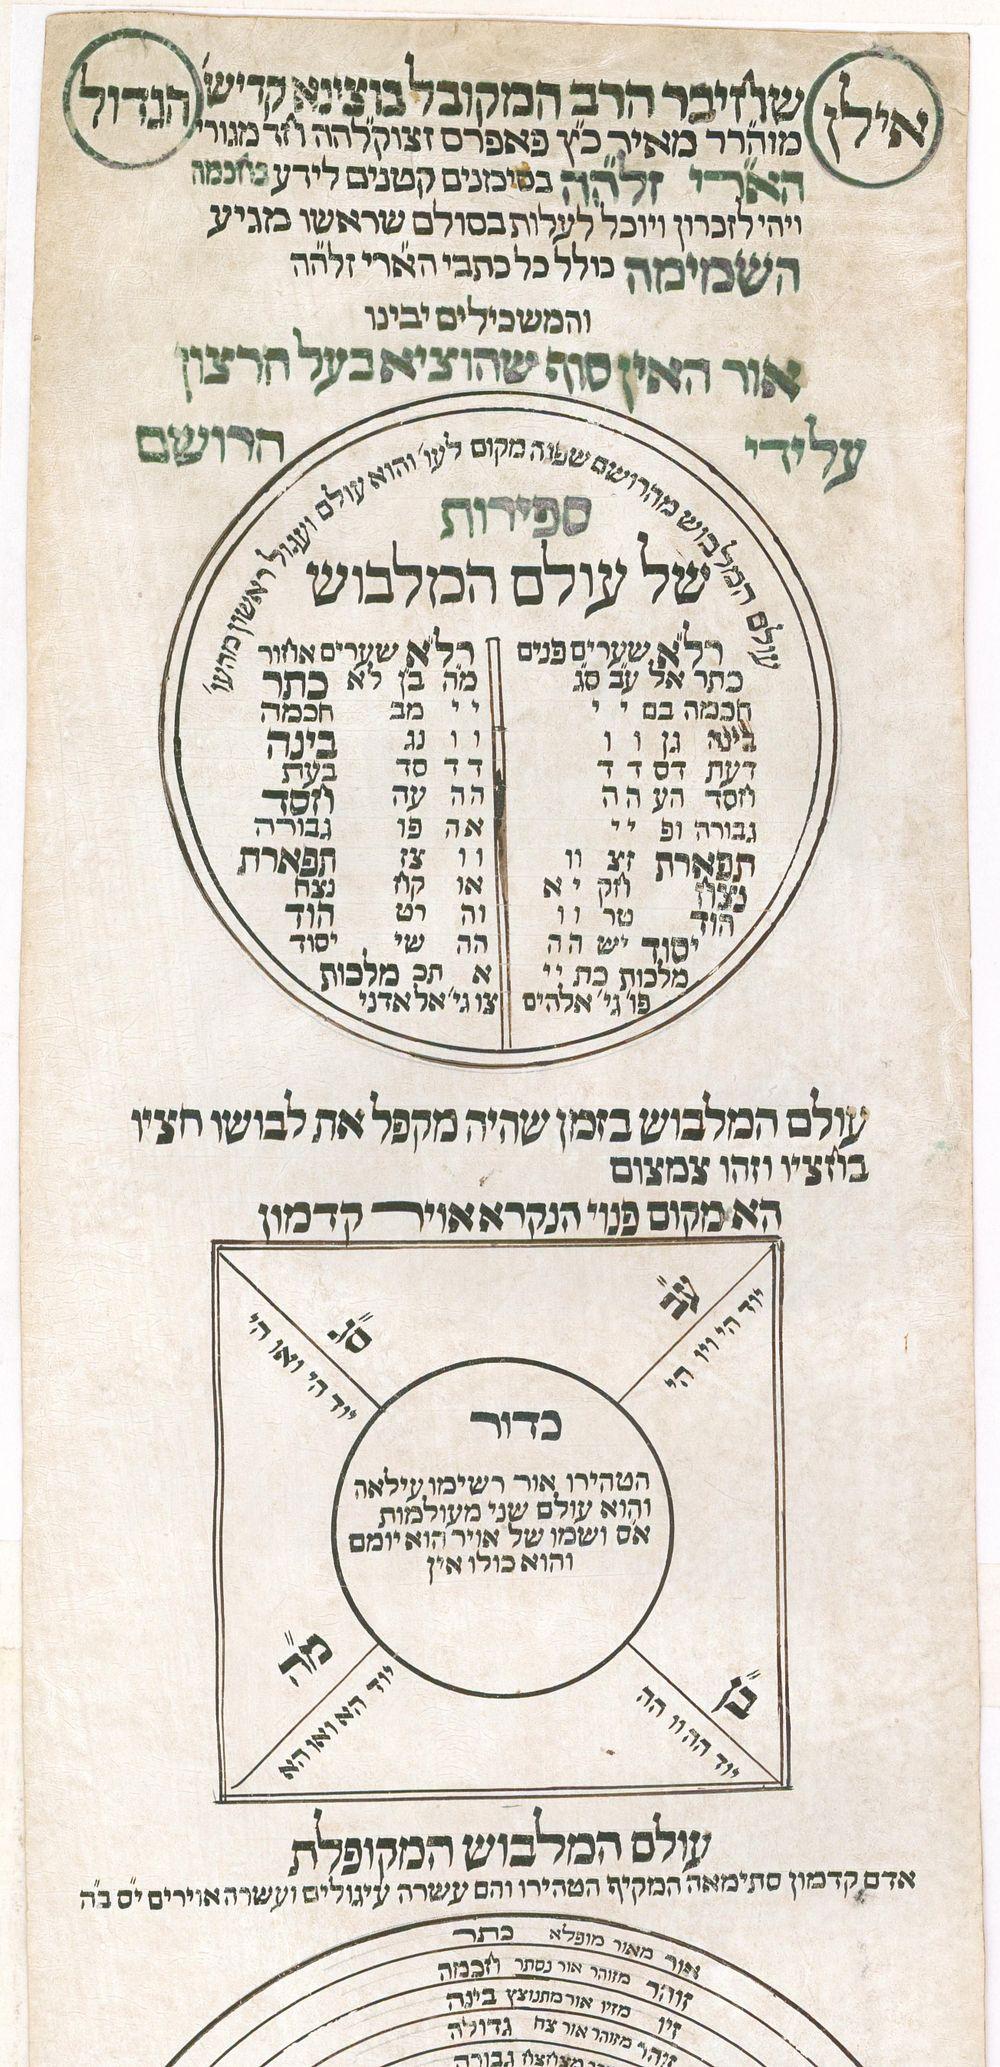 אילן
הגדול
שחיבר הרב המקובל בוצינא קדישׁ
מוה״רר מאיר כ״ץ פאפרס זצוקללהה חד מגורי
הא״רי זלה״ה בסימנים קטנים לידע בחכמה
ויהי לזכרון ויוכל לעלות בסולם שראשו מגיע
השמימה כולל כל כתבי הא״רי זלה״ה
והמשכילים יבינו
אור האין סוף שהוציא בעל הרצון
על ידי הרושם
עולם המלבוש מהרושם שפנה מקום לעו׳ והוא עולם ועגול ראשון מהעו׳
ספירות
של עולם המלבוש
רל״א שערים פנים
כתר אל עב סג
חכמה במ י י
בינה גן ו ו
דעת דס ד ד
חסד הע ה ה
גבורה ופ י י
תפארת זצ וו
נצח חק י א
הוד טר ו ו
יסוד יש ה ה
מלכות כת י י
פו׳ גי׳ אלהים
רל״א שערים אחור
מה בן לא כתר
י י מב חכמה
ו ו נג בינה
ד ד סד דעת
הה עה חסד
אה פו גבורה
ו ו צז תפארת
או קח נצח
וה רט הוד
הה שי יסוד
א תכ מלכות
צו גי׳ אל אדני
עולם המלבוש בזמן שהיה מקפל את לבושו חציו
בחציו וזהו צמצום
הא מקום פנוי הנקרא אויר קדמון
ע״ב
יוד הי ויו הי
ס״ג
יוד הי ואו הי
כדור
הטהירו אור רשימו עילאה
והוא עולם שני מעולמות
א״ס ושמו של אויר הוא יומם
והוא כולו אין
מ״ה
יוד הא ואו הא
ב״ן
יוד הה וו הה
עולם המלבוש המקופלת
אדם קדמון סתימאה המקיף הטהירו והם עשרה עיגולים ועשרה אוירים י״ס ב״ה
אור מאור מופלא כתר
זוהר מזוהר אור נסתר חכמה
זיו מזיו אור מתנוצץ בינה
זוהר מזוהר אור צח גדולה
מצוחצח גבורה